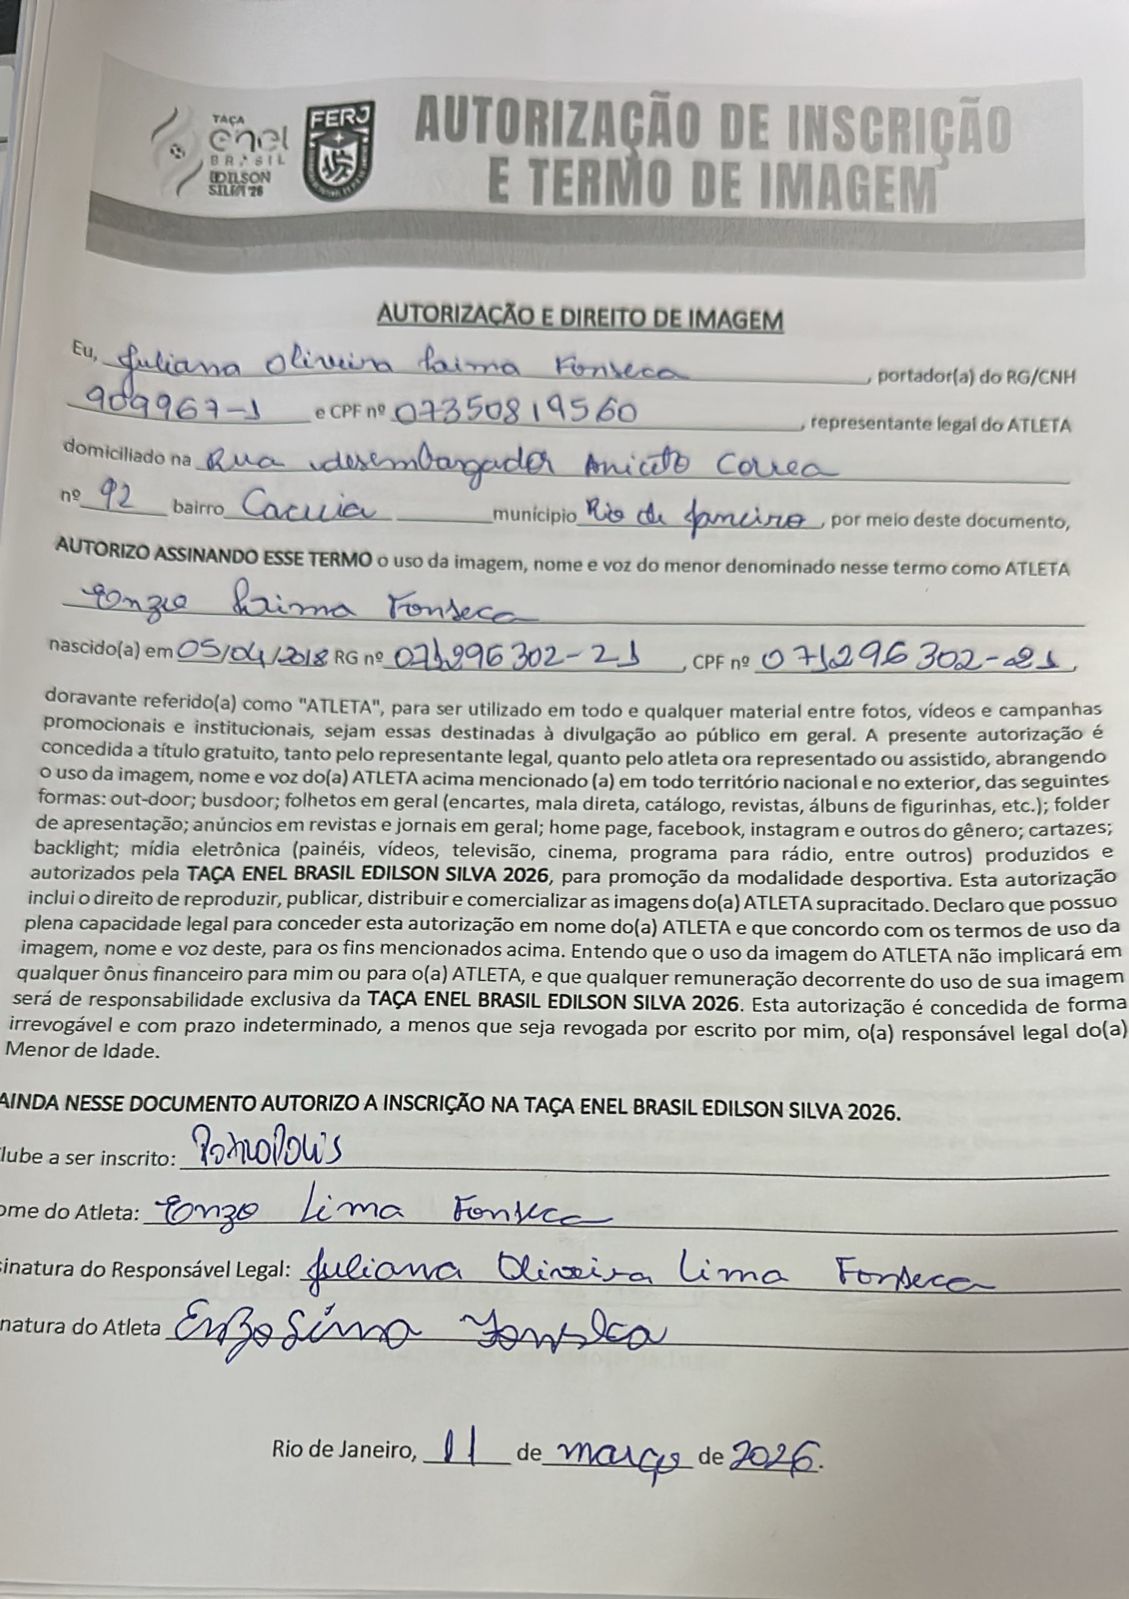 TAÇA
enel
BRASIL
EDILSON
SILVA'26
FERJ
AUTORIZAÇÃO DE INSCRIÇÃO
E TERMO DE IMAGEM
AUTORIZAÇÃO E DIREITO DE IMAGEM
Eu, Juliana Oliveira Lima Fonseca, portador(a) do RG/CNH
909967-1 e CPF nº 07350819560, representante legal do ATLETA
domiciliado na Rua desembargador Aniceto Correa
nº 92 bairro Cacuia município Rio de Janeiro, por meio deste documento,
AUTORIZO ASSINANDO ESSE TERMO o uso da imagem, nome e voz do menor denominado nesse termo como ATLETA
Enzo Lima Fonseca
nascido(a) em 05/04/2018 RG nº 071296302-21, CPF nº 071296302-21,
doravante referido(a) como "ATLETA", para ser utilizado em todo e qualquer material entre fotos, vídeos e campanhas
promocionais e institucionais, sejam essas destinadas à divulgação ao público em geral. A presente autorização é
concedida a título gratuito, tanto pelo representante legal, quanto pelo atleta ora representado ou assistido, abrangendo
o uso da imagem, nome e voz do(a) ATLETA acima mencionado (a) em todo território nacional e no exterior, das seguintes
formas: out-door; busdoor; folhetos em geral (encartes, mala direta, catálogo, revistas, álbuns de figurinhas, etc.); folder
de apresentação; anúncios em revistas e jornais em geral; home page, facebook, instagram e outros do gênero; cartazes;
backlight; mídia eletrônica (painéis, vídeos, televisão, cinema, programa para rádio, entre outros) produzidos e
autorizados pela TAÇA ENEL BRASIL EDILSON SILVA 2026, para promoção da modalidade desportiva. Esta autorização
inclui o direito de reproduzir, publicar, distribuir e comercializar as imagens do(a) ATLETA supracitado. Declaro que possuo
plena capacidade legal para conceder esta autorização em nome do(a) ATLETA e que concordo com os termos de uso da
imagem, nome e voz deste, para os fins mencionados acima. Entendo que o uso da imagem do ATLETA não implicará em
qualquer ônus financeiro para mim ou para o(a) ATLETA, e que qualquer remuneração decorrente do uso de sua imagem
será de responsabilidade exclusiva da TAÇA ENEL BRASIL EDILSON SILVA 2026. Esta autorização é concedida de forma
irrevogável e com prazo indeterminado, a menos que seja revogada por escrito por mim, o(a) responsável legal do(a)
Menor de Idade.
AINDA NESSE DOCUMENTO AUTORIZO A INSCRIÇÃO NA TAÇA ENEL BRASIL EDILSON SILVA 2026.
lube a ser inscrito:
ome do Atleta: Enzo Lima Fonseca
sinatura do Responsável Legal: Juliana Oliveira Lima Fonseca
natura do Atleta Enzo Lima Fonseca
Rio de Janeiro, 11 de março de 2026.